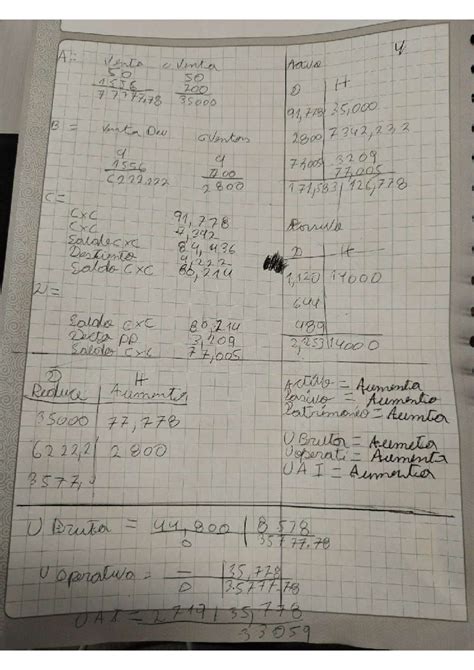 4
A= Venta c Venta
50 50
1556 700
77777.78 35000
B= Venta Dev c Ventas
4 4
1556 700
6222.222 2800
C=
CxC 91,778
CxC 7,342
Saldo CxC 84,436
Descuento 4,222
Saldo CxC 80,214
Saldo CxC 80,214
Decto PP 3,209
Saldo CxC 77,005
Activo
D H
91,778 35,000
2800 7342,222
77005 3209
77,005
171,583 126,778
Pasivo
D H
1,120 14000
644
489
2,253 14000
D H
Reduce Aumenta
35000 77,778
6222,2 2800
3577,
Activo = Aumenta
Pasivo = Aumenta
Patrimonio = Aumenta
U Bruta = Aumenta
U operati = Aumenta
U A I = Aumenta
U Bruta = 44,800 8578
0 35777.78
U operativa = — 35,778
0 35777.78
UAI = 2719 35,778
33059